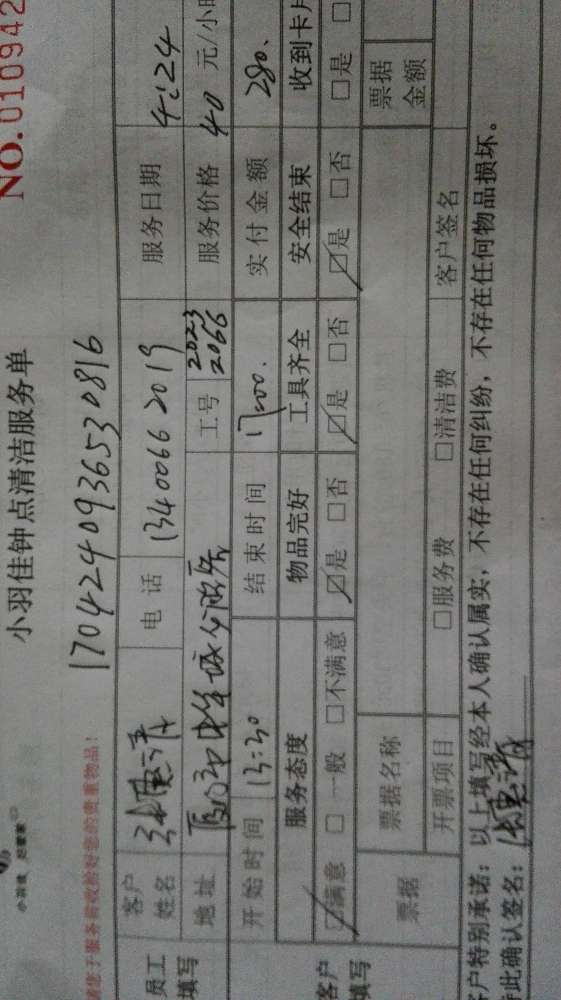 NO.010942
小羽佳钟点清洁服务单
1704240936530816
请您于服务前收拾好您的贵重物品！
员工填写
客户姓名 电话 13400662019 服务日期 4.24
地址 工号 2023 2066 服务价格 40 元/小时
开始时间 13:30 结束时间 17:00. 实付金额 280.
客户填写
服务态度 物品完好 工具齐全 安全结束 收到卡片
☑满意 □一般 □不满意 ☑是 □否 ☑是 □否 ☑是 □否 □是
票据 票据名称 票据金额
开票项目 □服务费 □清洁费 客户签名
客户特别承诺：以上填写经本人确认属实，不存在任何纠纷，不存在任何物品损坏。
此确认签名：